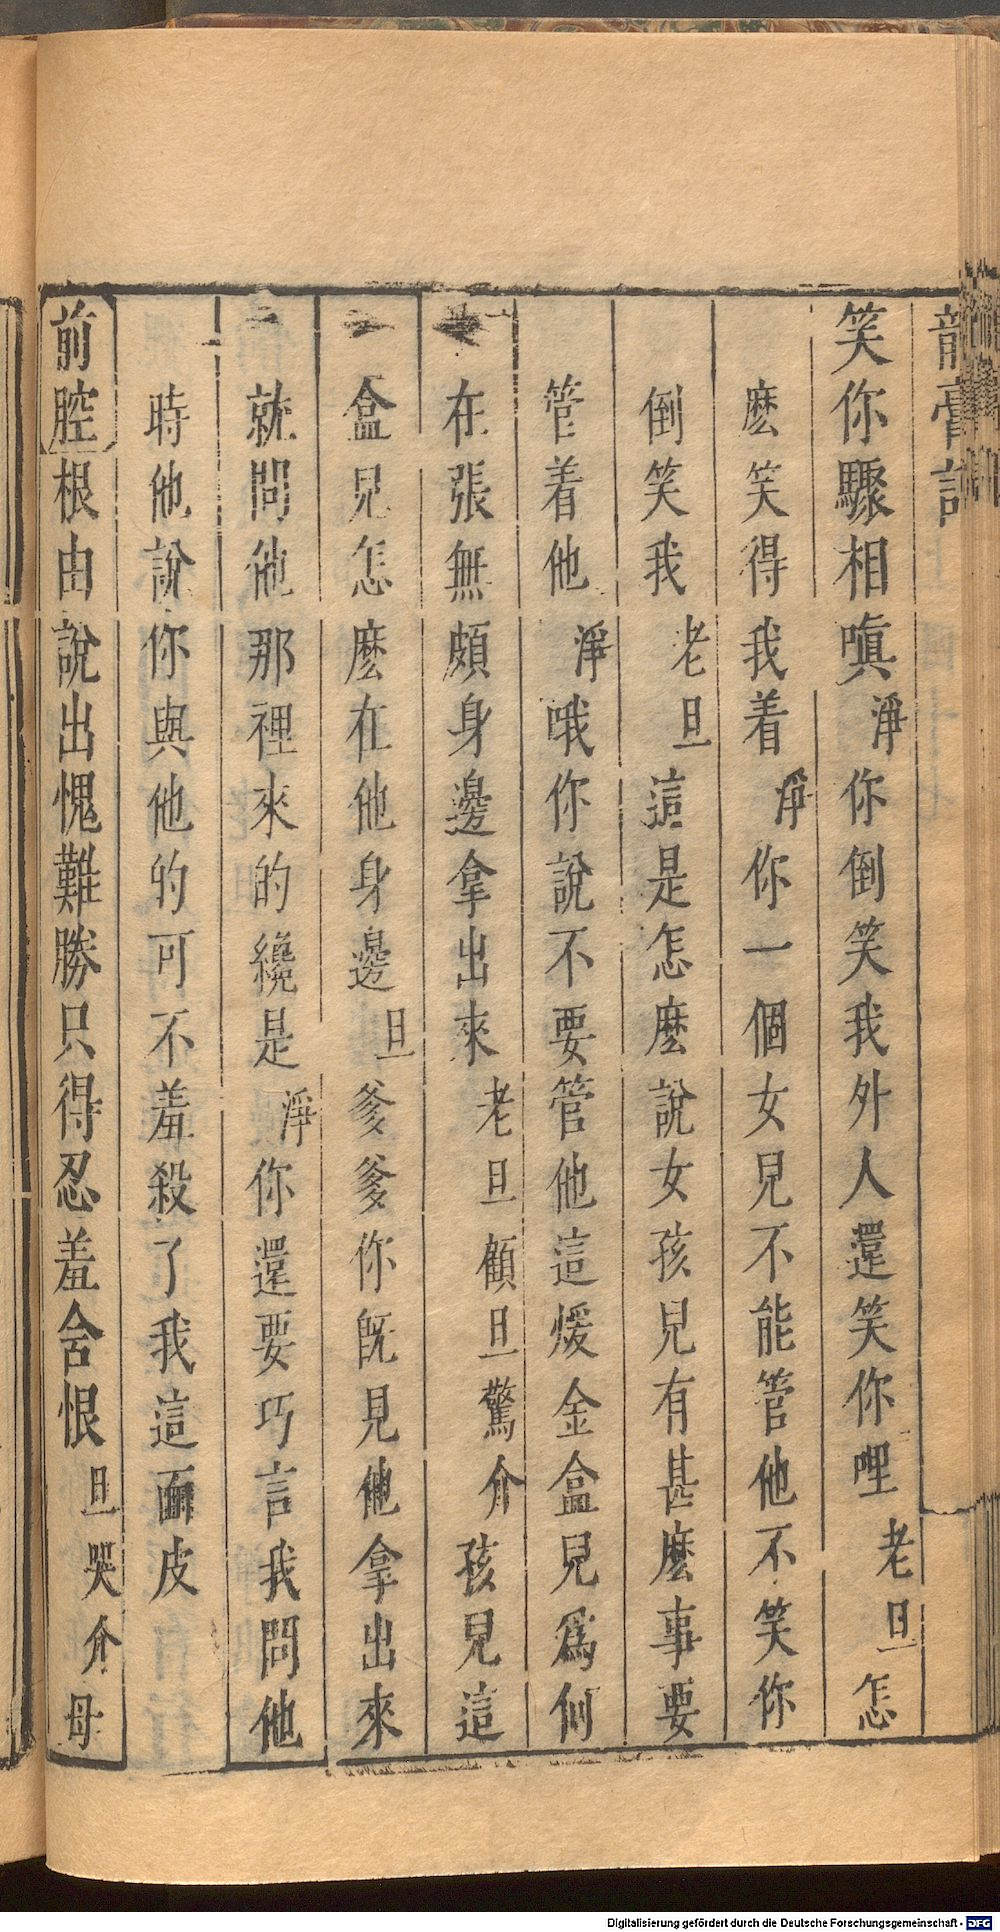 龍膏記
笑你驟相嗔淨你倒笑我外人還笑你哩老旦怎
麽笑得我着淨你一個女兒不能管他不笑你
倒笑我老旦這是怎麽說女孩兒有甚麽事要
管着他淨哦你說不要管他這煖金盒兒爲何
在張無頗身邊拿出來老旦顧旦驚介孩兒這
盒兒怎麽在他身邊旦爹爹你旣見他拿出來
就問他那裡來的纔是淨你還要巧言我問他
時他說你與他的可不羞殺了我這面皮
前腔根由說出愧難勝只得忍羞含恨旦哭介母
Digitalisierung gefördert durch die Deutsche Forschungsgemeinschaft - DFG